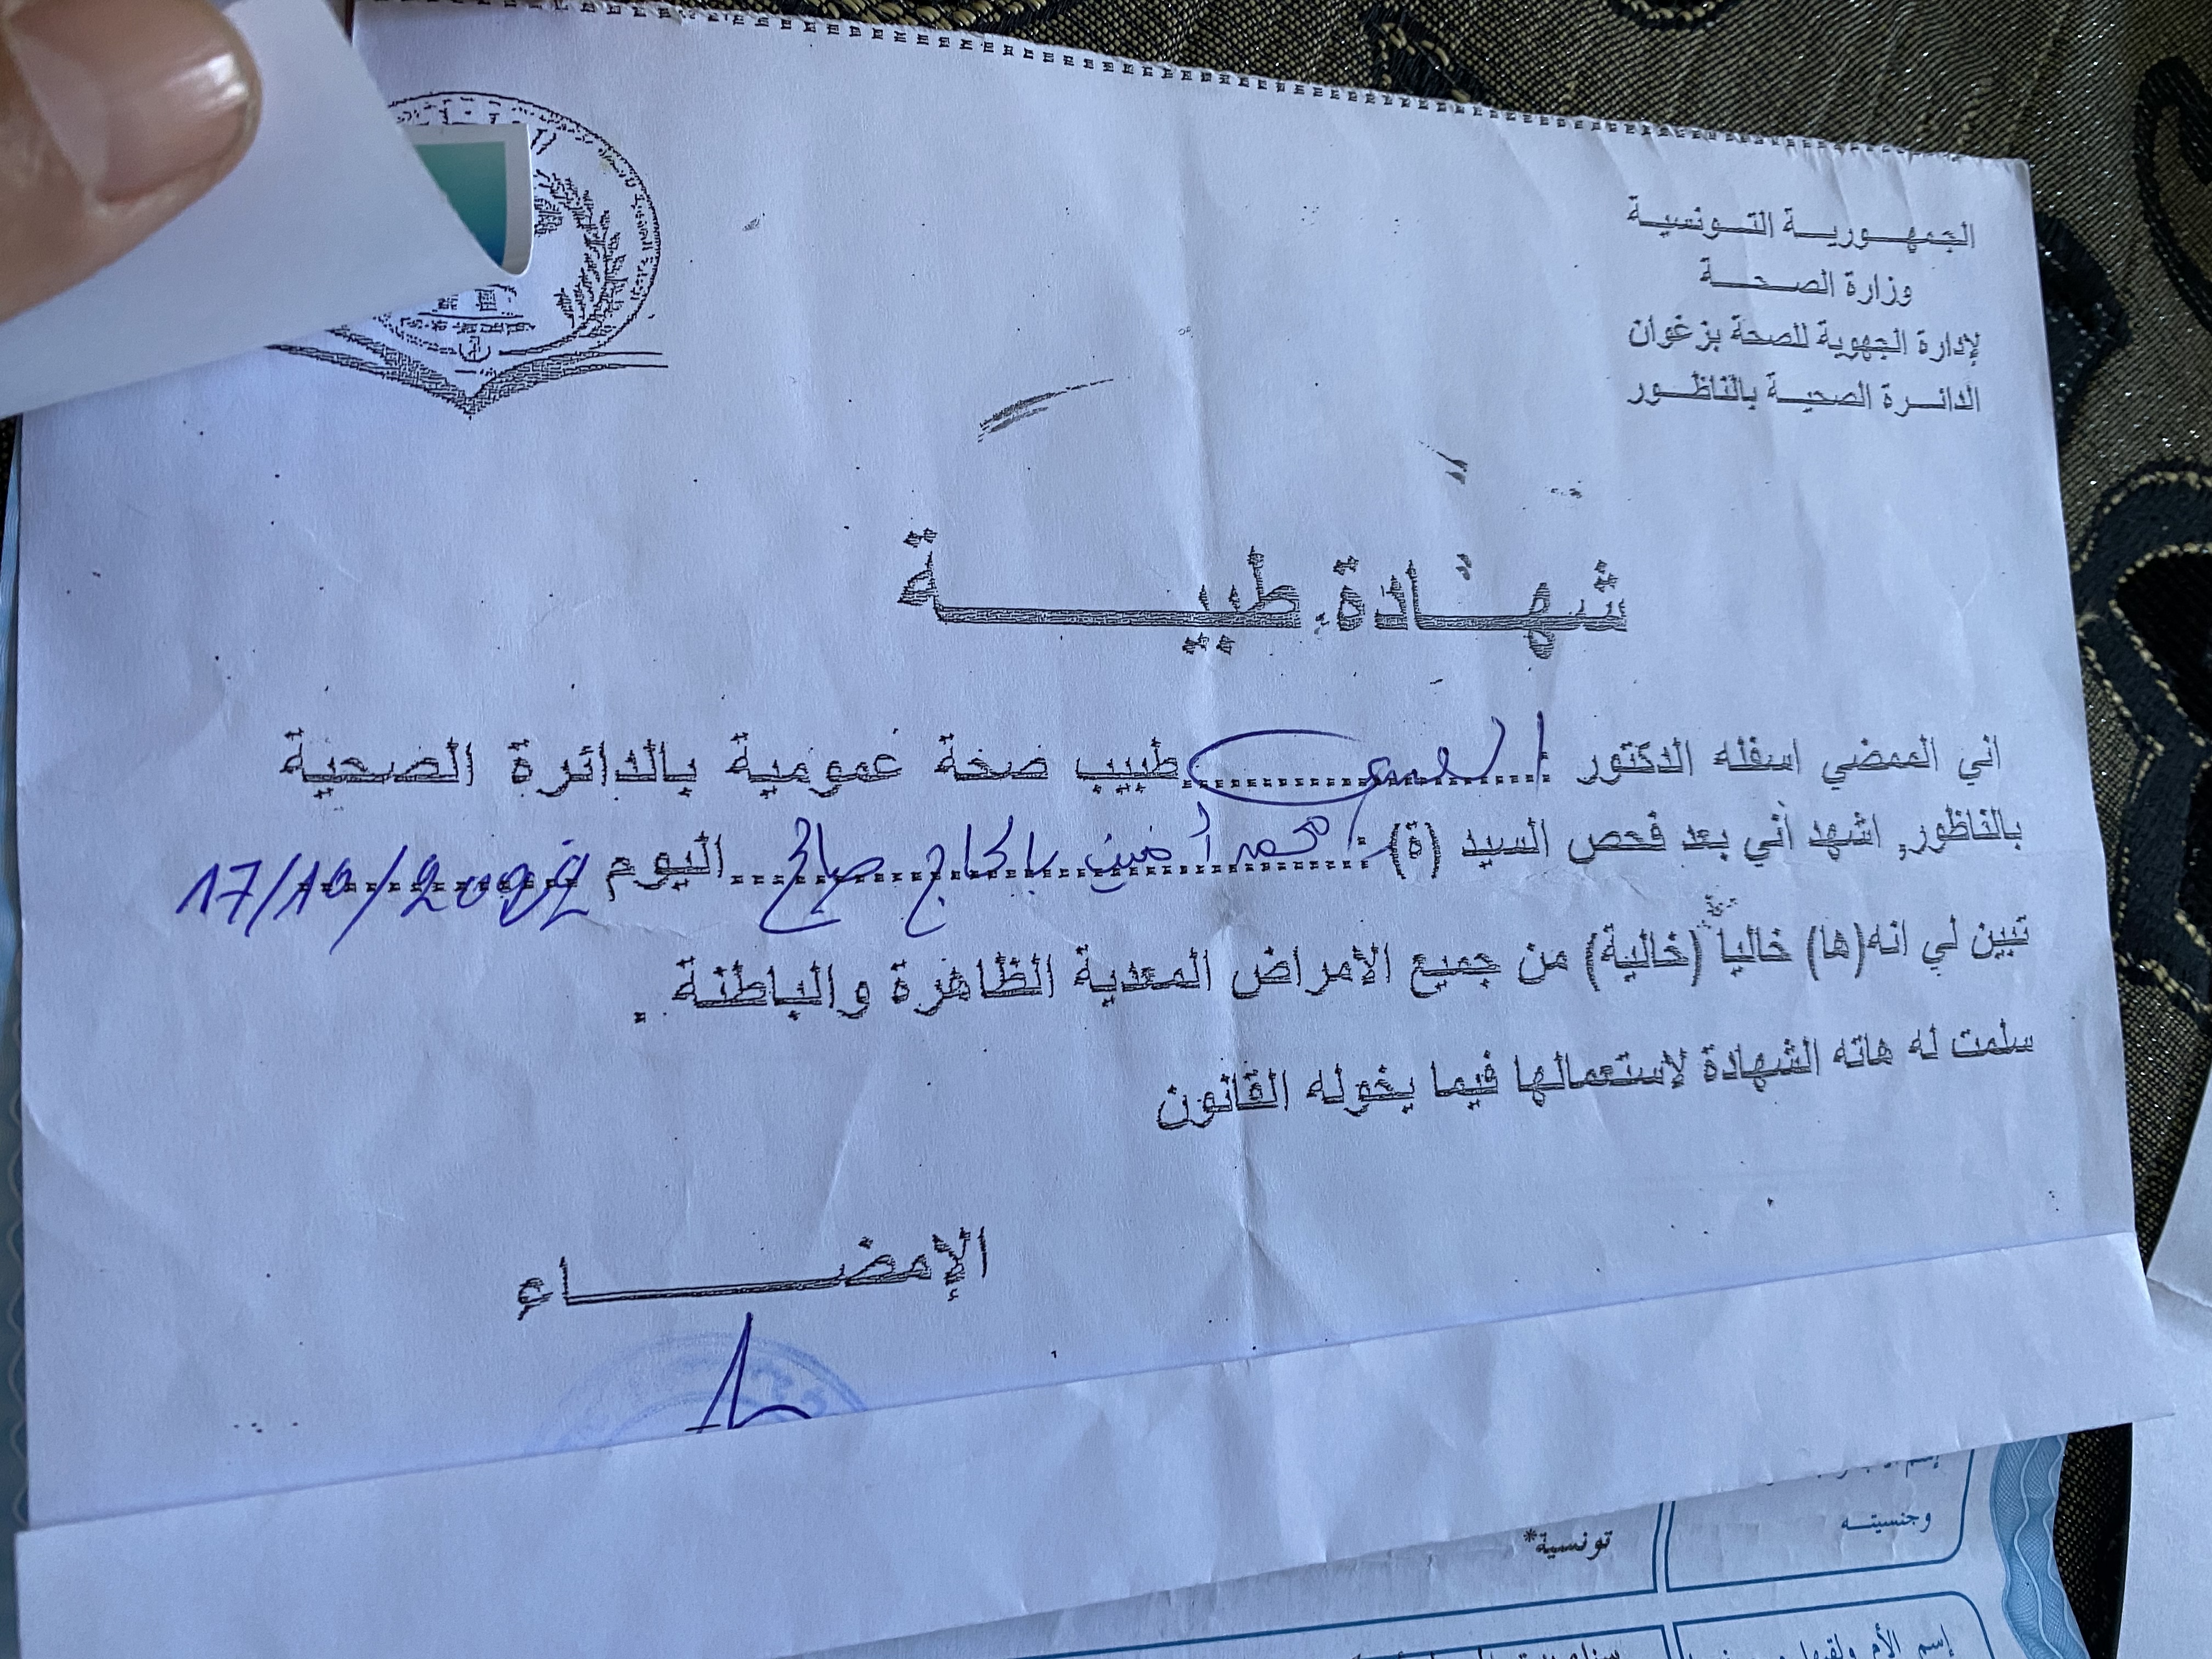 الجمهورية التونسية
وزارة الصحة
لإدارة الجهوية للصحة بزغوان
الدائرة الصحية بالناظور
شهادة طبية
اني الممضي اسفله الدكتور طبيب صحة عمومية بالدائرة الصحية
بالناظور, اشهد أني بعد فحص السيد (ة) محمد أمين بالحاج صالح اليوم 17/10/2022
تبين لي انه(ها) خالياً (خالية) من جميع الأمراض المعدية الظاهرة والباطنة .
سلمت له هاته الشهادة لإستعمالها فيما يخوله القانون
الإمضاء
وجنسيته
تونسية*
إسم الأم ولقبها